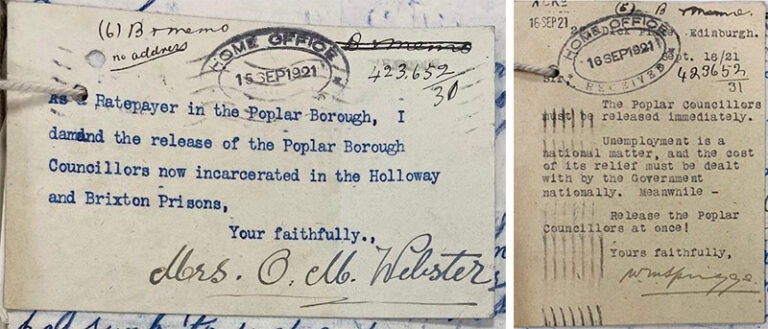 (6) B r memo
no address
B r memo
HOME OFFICE
15 SEP 1921
423,652/31
As a Ratepayer in the Poplar Borough, I
damdnd the release of the Poplar Borough
Councillors now incarcerated in the Holloway
and Brixton Prisons,
Your faithfully.,
Mrs. O. M. Webster
16 SEP 21
(6) B r memo.
Edinburgh.
HOME OFFICE
16 SEP 1921
RECEIVED
Sept. 16/21
423652/31
Sir,
The Poplar Councillors
must be released immediately.
Unemployment is a
national matter, and the cost
of its relief must be dealt
with by the Government
nationally. Meanwhile -
Release the Poplar
Councillors at once!
Yours faithfully,